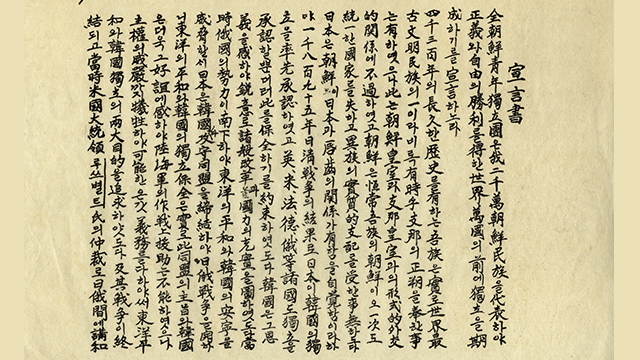 宣言書
全朝鮮青年獨立團은我二千萬朝鮮民族을代表하야
正義와自由의勝利를得한世界萬國의前에獨立을期
成하기를宣言하노라
四千三百年의長久한歷史를有하는吾族은實로世界最
古文明民族의一이라비록有時乎支那의正朔을奉한事
는有하엿으나此는朝鮮皇室과支那皇室과의形式的外交
的關係에不過하엿고朝鮮은恒常吾族의朝鮮이오一次도
統一한國家를失하고異族의實質的支配를受한事無하도다
日本은朝鮮이日本과唇齒의關係가有함을自覺함이라하
야一千八百九十五年日淸戰爭의結果로日本이韓國의獨
立을率先承認하엿고英米法德俄等諸國도獨立을
承認할뿐더러此를保全하기를約束하엿도다韓國은그恩
義를感하야銳意로諸般改革과國力의充實을圖하엿도다當
時俄國의勢力이南下하야東洋의平和와韓國의安寧을
威脅할새日本은韓國과攻守同盟을締結하야日俄戰爭을開하
니東洋의平和와韓國의獨立保全은實로此同盟의主旨라韓國
은더욱그好誼에感하야陸海軍의作戰上援助는不能하엿으나
主權의威嚴까지犧牲하야可能한온갖義務를다하야써東洋平
和와韓國獨立의兩大目的을追求하얏도다及其戰爭이終
結되고當時米國大統領루쓰벨트氏의仲裁로日俄間에講和